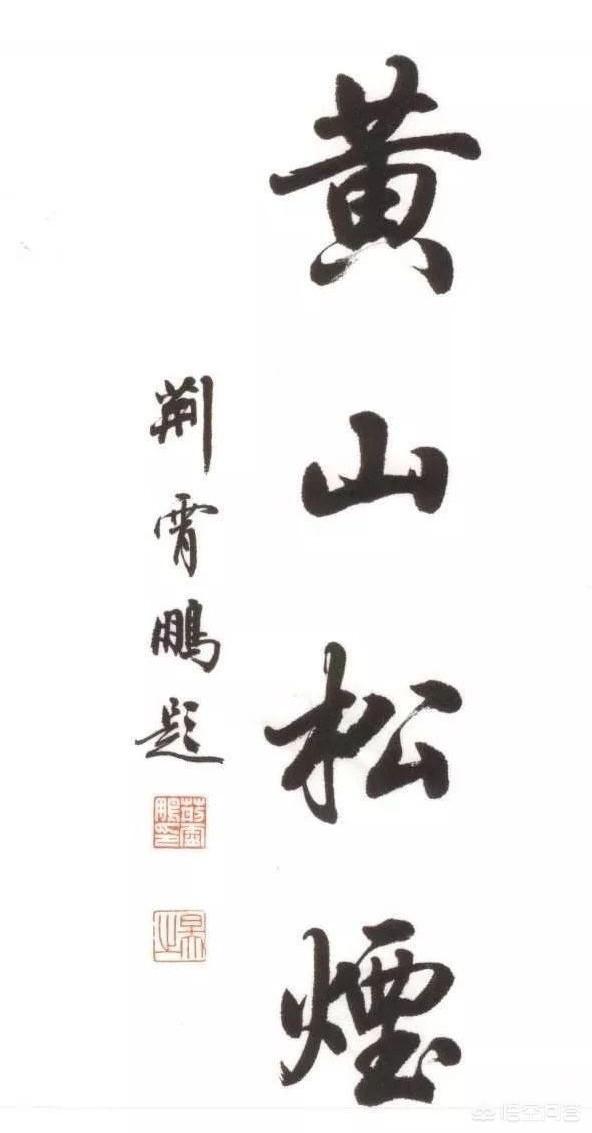 黄山松煙
荆霄鵬题
悟空问答